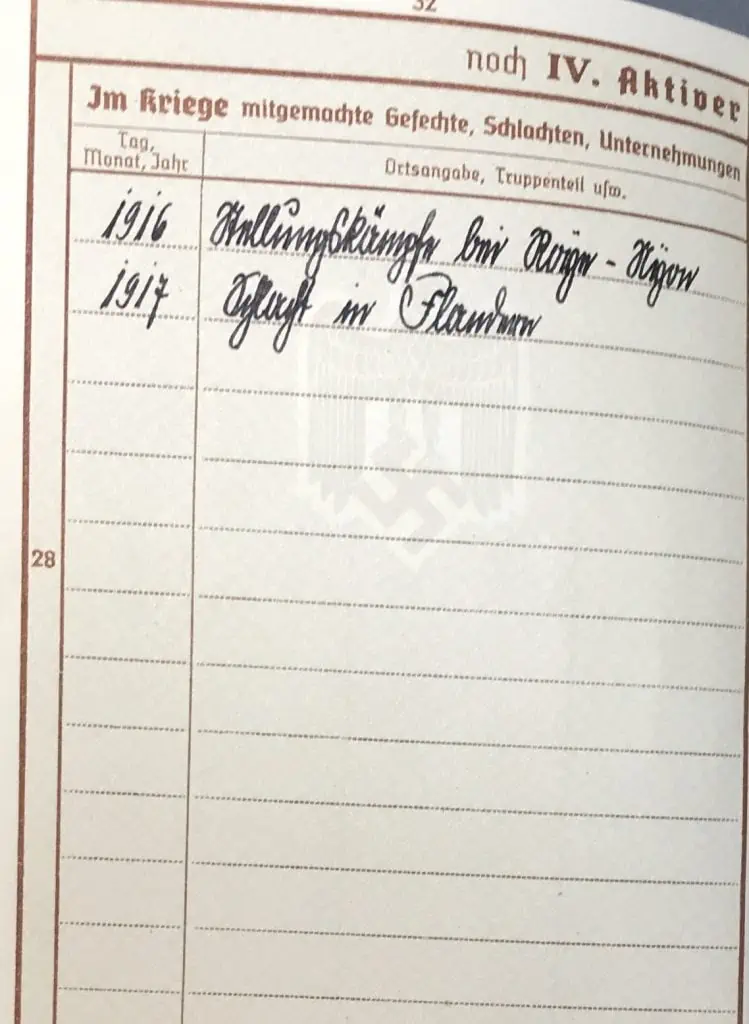 32
noch IV. Aktiver
Im Kriege mitgemachte Gefechte, Schlachten, Unternehmungen
Tag,
Monat, Jahr
Ortsangabe, Truppenteil usw.
1916 Stellungskämpfe bei Roye - Noyon
1917 Schlacht in Flandern
28